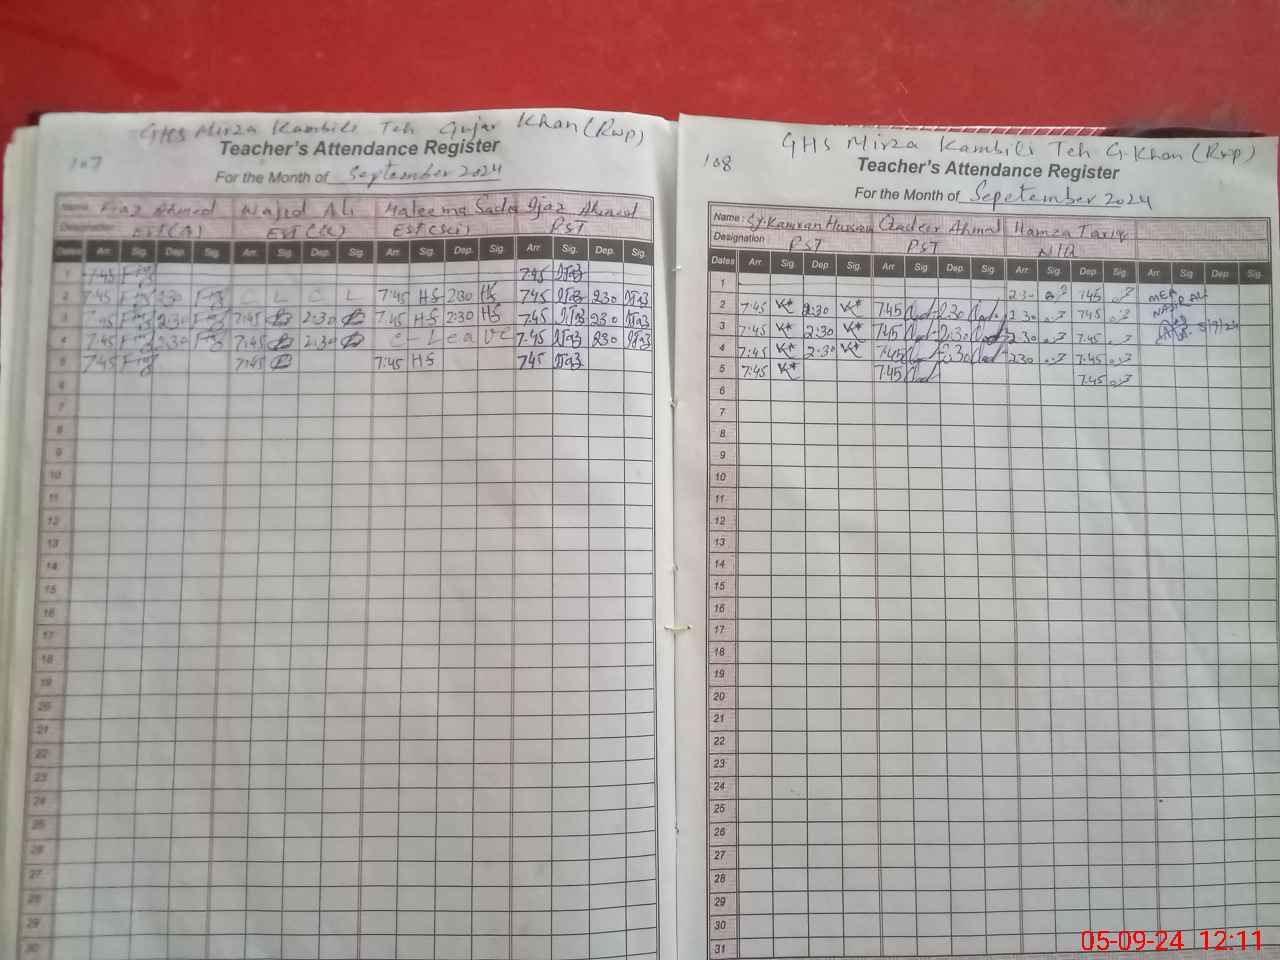 GHS Mirza Kambili Teh Gujar Khan (Rwp)
107
Teacher's Attendance Register
For the Month of September 2024
Name: Fraz Ahmed Wajid Ali Haleema Sadia Ijaz Ahmed
Designation EST(A) EST(C) EST(Sci) PST
Dates Arr. Sig. Dep. Sig. Arr. Sig. Dep. Sig. Arr. Sig. Dep. Sig. Arr. Sig. Dep. Sig.
1 7:45 7:45
2 7:45 2:30 C L C L 7:45 HS 2:30 HS 7:45 2:30
3 7:45 2:30 7:45 2:30 7:45 HS 2:30 HS 7:45 2:30
4 7:45 2:30 7:45 2:30 C-Leave 7:45 2:30
5 7:45 7:45 7:45 HS 7:45
6
7
8
9
10
11
12
13
14
15
16
17
18
19
20
21
22
23
24
25
26
27
28
29
30
GHS Mirza Kambili Teh G.Khan (Rwp)
108
Teacher's Attendance Register
For the Month of Sepetember 2024
Name: Sy.Kamran Hussain Qadeer Ahmad Hamza Tariq
Designation PST PST N/Q
Dates Arr. Sig. Dep. Sig. Arr. Sig. Dep. Sig. Arr. Sig. Dep. Sig. Arr. Sig. Dep. Sig.
1
2 7:45 2:30 7:45 2:30 2:30 7:45
3 7:45 2:30 7:45 2:30 2:30 7:45
4 7:45 2:30 7:45 2:30 2:30 7:45
5 7:45 7:45 2:30 7:45
7:45
MEA
5/9/24
6
7
8
9
10
11
12
13
14
15
16
17
18
19
20
21
22
23
24
25
26
27
28
29
30
31
05-09-24 12:11